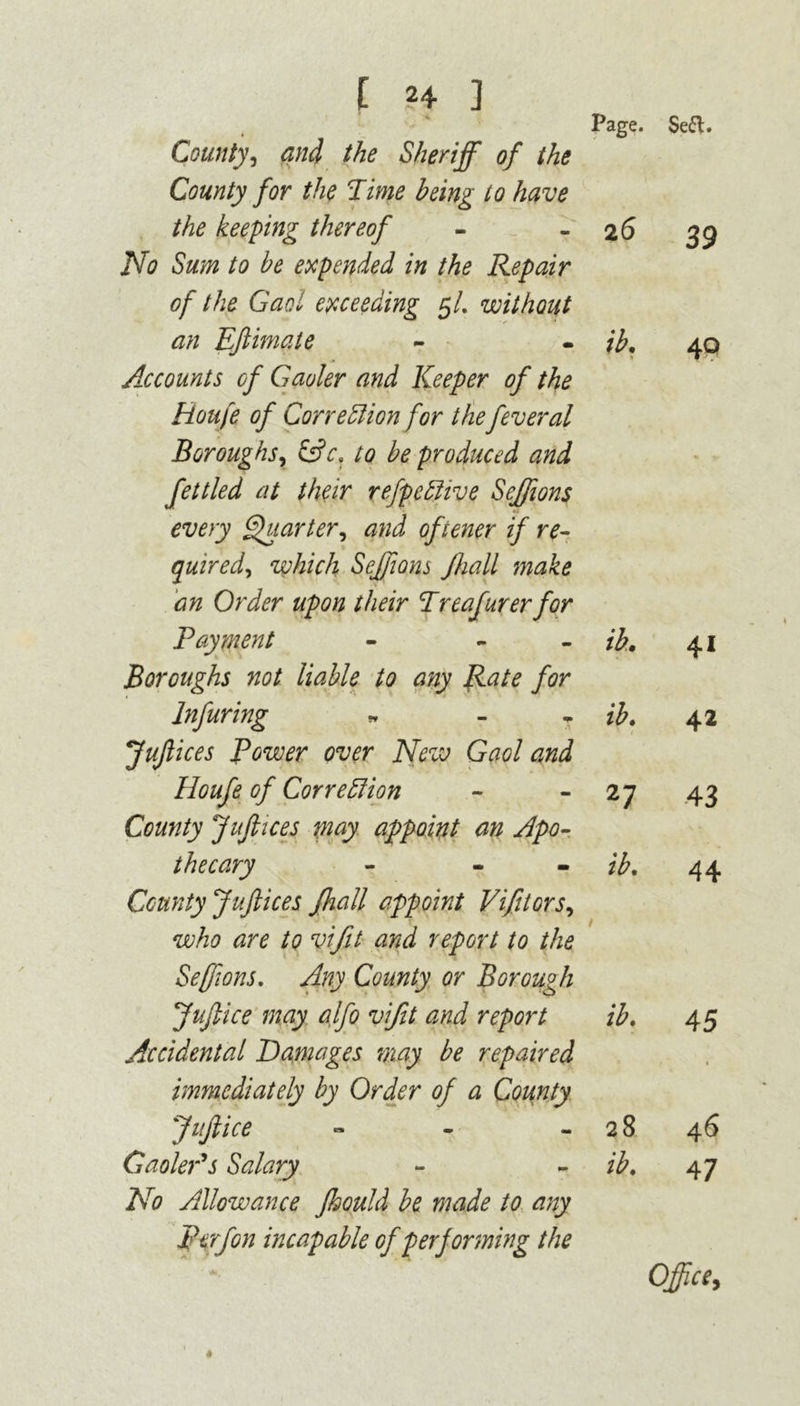 [ 24 ]
Page. Sect.
County, and the Sheriff of the
County for the Time being to have
the keeping thereof - - 26 39
No Sum to be expended in the Repair
of the Gaol exceeding 5l. without
an Eſtimate - - ib. 40
Accounts of Gaoler and Keeper of the
Houſe of Correction for the ſeveral
Boroughs, &c. to be produced and
ſettled at their reſpective Seſſions
every Quarter, and oftener if re-
quired, which Seſſions ſhall make
an Order upon their Treaſurer for
Payment - - - ib. 41
Boroughs not liable to any Rate for
Inſuring - - - ib. 42
Juſtices Power over New Gaol and
Houſe of Correction - - 27 43
County Juſtices may appoint an Apo-
thecary - - - ib. 44
County Juſtices ſhall appoint Viſitors,
who are to viſit and report to the
Seſſions. Any County or Borough
Juſtice may alſo viſit and report ib. 45
Accidental Damages may be repaired
immediately by Order of a County
Juſtice - - - 28 46
Gaoler's Salary - - ib. 47
No Allowance ſhould be made to any
Perſon incapable of performing the
Office,